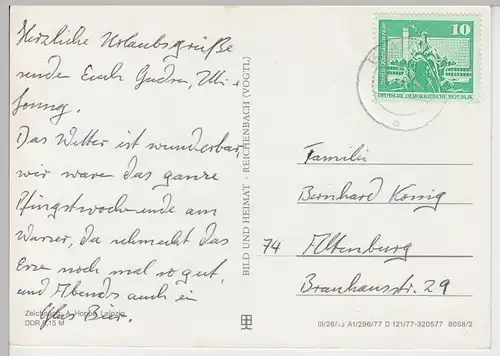 Herzliche Urlaubsgrüße
senden Euch Gudrun, Uli +
Wir waren das ganze
Das Wetter ist wunderbar,
wir waren das ganze
Pfingstwochenende am
Wasser, da schmeckt das
Essen noch mal so gut,
und Abends auch ein
Glas Bier.
Zeichnung: A. Hoppe, Leipzig
DDR 0,15 M
BILD UND HEIMAT · REICHENBACH (VOGTL)
10
DEUTSCHE DEMOKRATISCHE REPUBLIK
Familie
Bernhard König
74 Altenburg
Brauhausstr. 29
III/26/13 A1/296/77 D 121/77-320577 8058/2